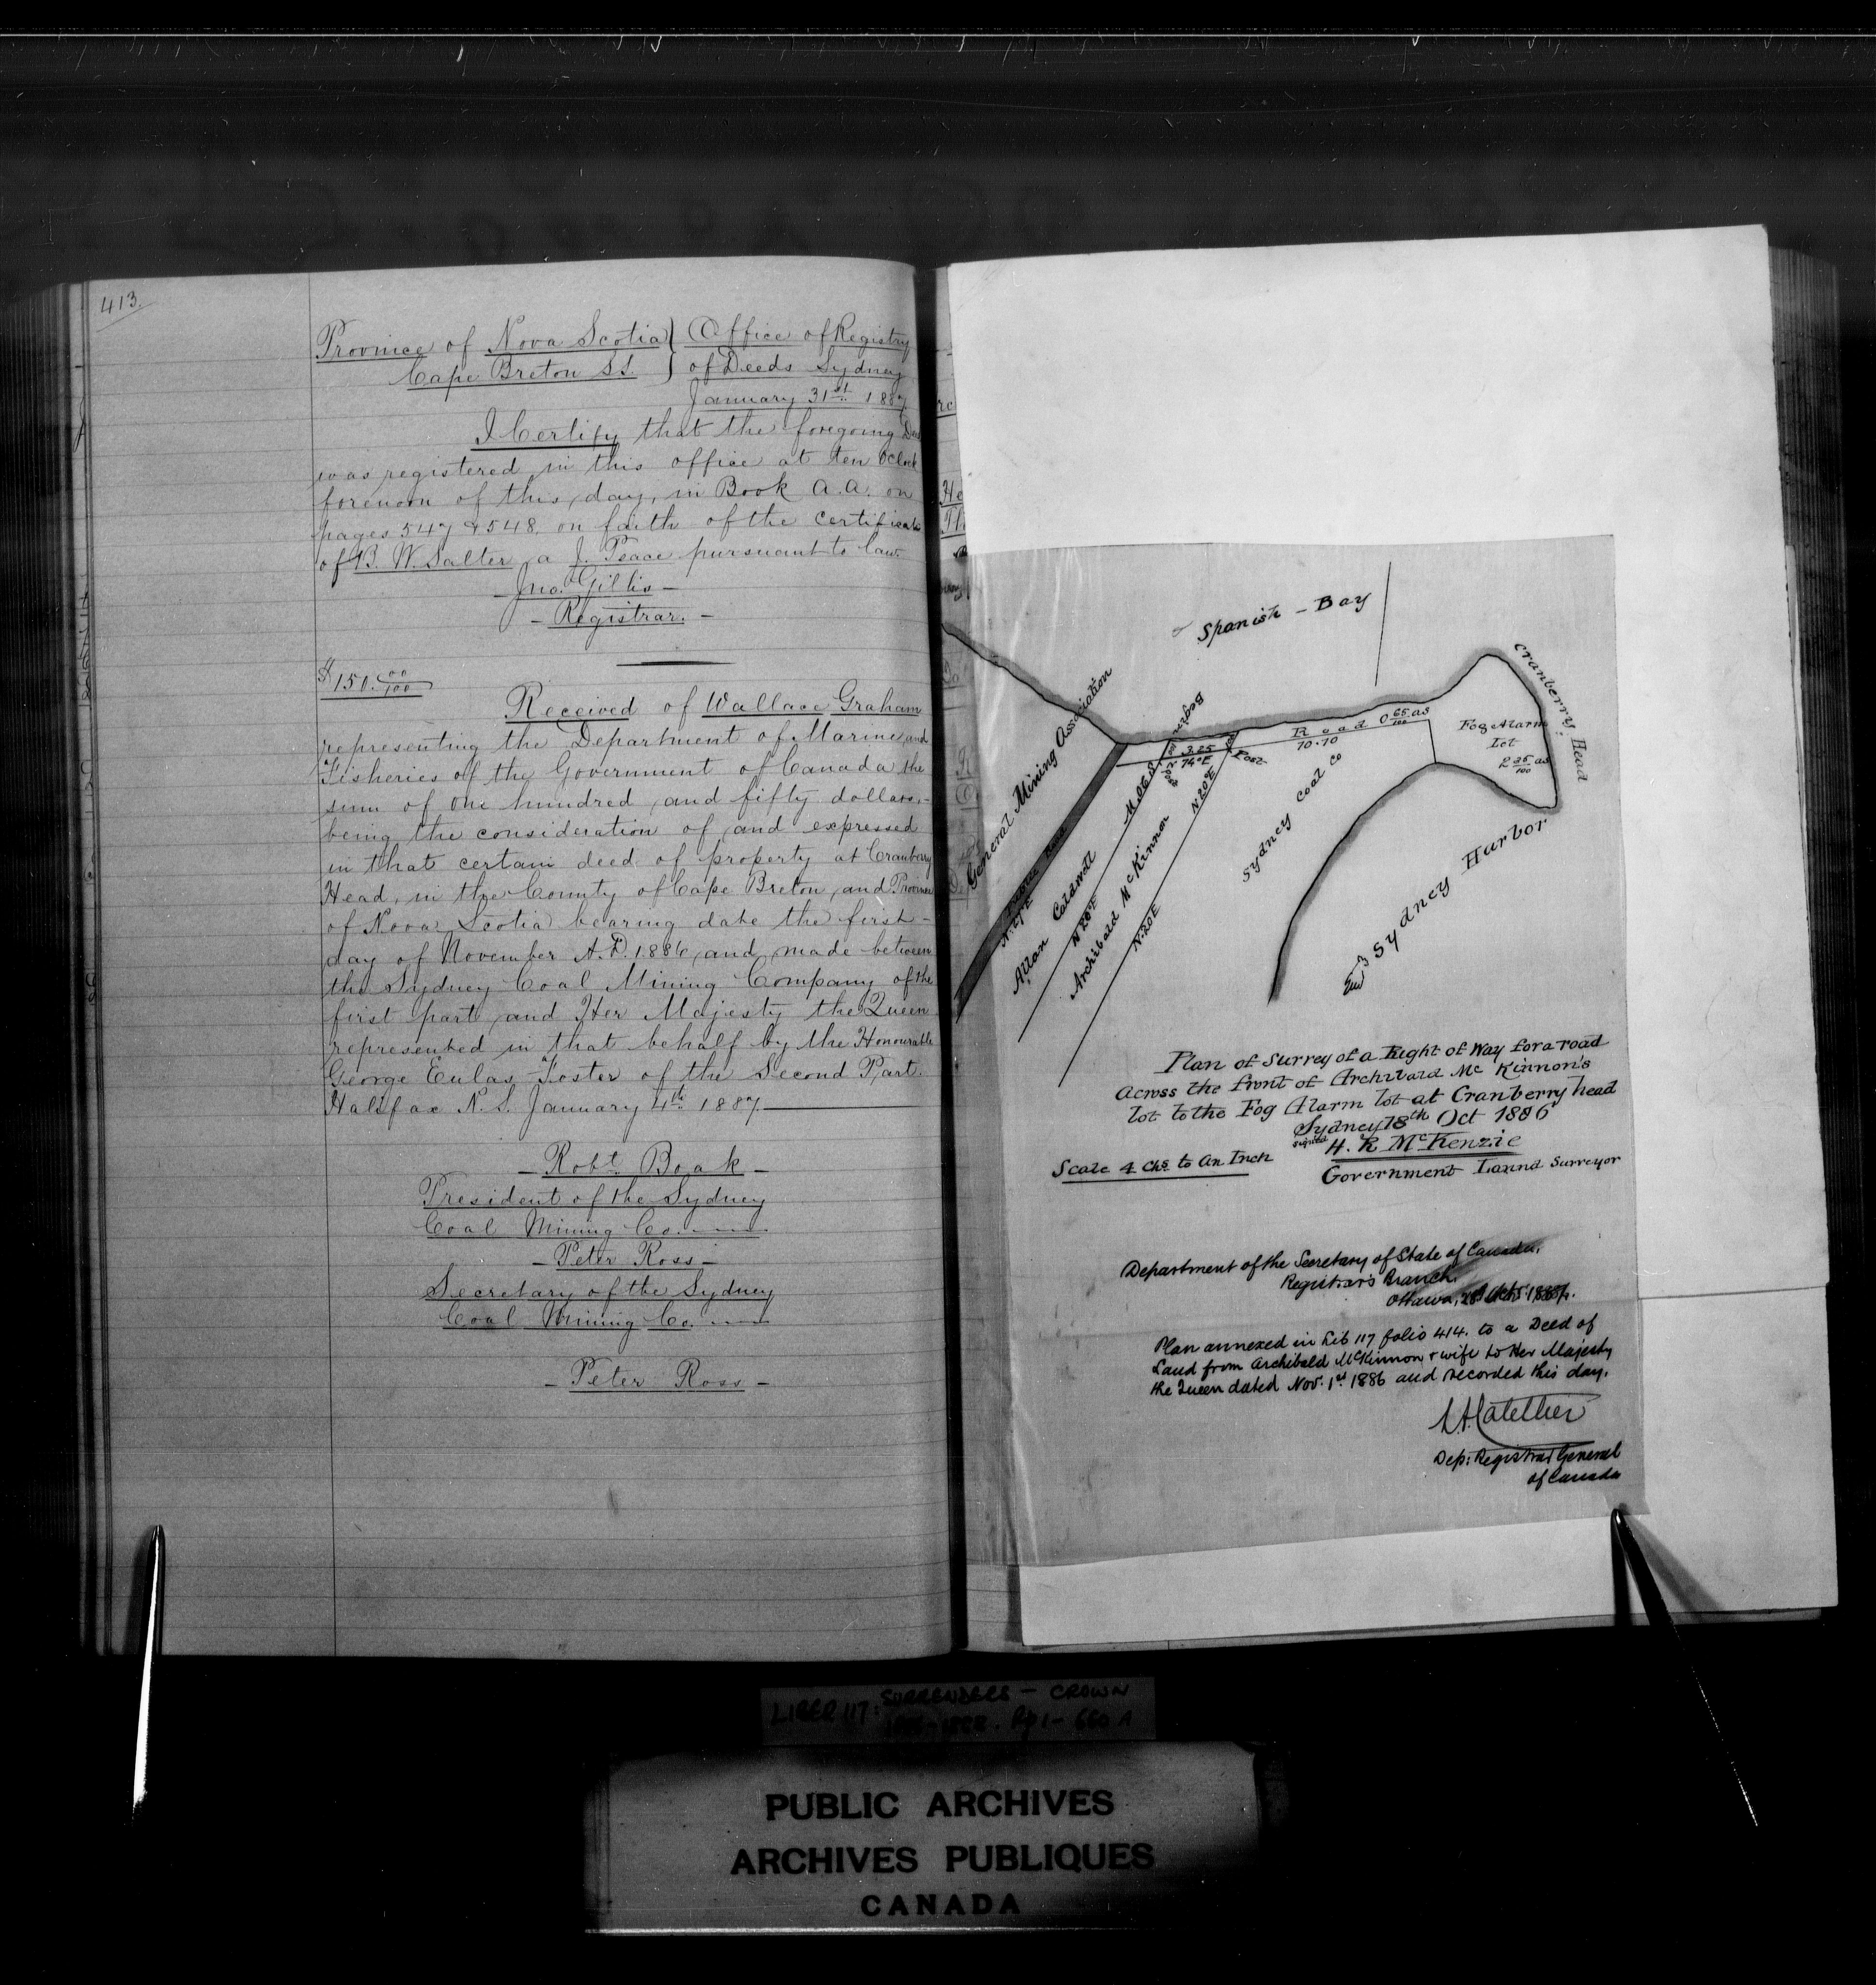 413.
Province of Nova Scotia } Office of Registry
Cape Breton S.S. } of Deeds Sydney
January 31st 1887
I Certify that the foregoing Deed
was registered in this office at ten Oclock
forenoon of this day, in Book A.A. on
pages 547 & 548. on faith of the certificate
of B. W. Salter a J. Peace pursuant to law.
- Jno. Gillis -
- Registrar. -
$150.00/100
Received of Wallace Graham
representing the Department of Marine and
Fisheries of the Government of Canada the
sum of One hundred and fifty dollars,-
being the consideration of and expressed
in that certain deed of property at Cranberry
Head, in the County of Cape Breton, and Province
of Nova Scotia bearing date the first -
day of November A.D. 1886, and made between
the Sydney Coal Mining Company of the
first part and Her Majesty the Queen
represented in that behalf by the Honourable
George Eulas Foster of the Second Part.
Halifax N.S. January 4th 1887
- Robt. Boak -
President of the Sydney
Coal Mining Co.
- Peter Ross -
Secretary of the Sydney
Coal Mining Co.
- Peter Ross -
Spanish - Bay
Cranberry Head
General Mining Association
Road 0 65/100 as
10.70
Fog Alarm
Lot
2 35/100 as
3.25
N 74°E
Post
N 20°E
Sydney Coal Co
Public Road
N. 27°E
Allan Caldwell
N 20°E
Archibald McKinnon
N. 20E
Sydney Harbor
Plan of Survey of a Right of Way for a road
Across the front of Archibald Mc Kinnon's
lot to the Fog Alarm lot at Cranberry head
Sydney 18th Oct 1886
signed H. R McKenzie
Scale 4 Chs to An Inch
Government Laand Surveyor
Department of the Secretary of State of Canada.
Registrar's Branch.
Ottawa, 1887.
Plan annexed in Lib 117 folio 414. to a Deed of
Land from Archibald McKinnon & wife to Her Majesty
the Queen dated Nov. 1st 1886 and recorded this day.
Dep: Registrar General
of Canada
LIBER 117: SURRENDERS - CROWN
Pp 1 - 660 A
PUBLIC ARCHIVES
ARCHIVES PUBLIQUES
CANADA